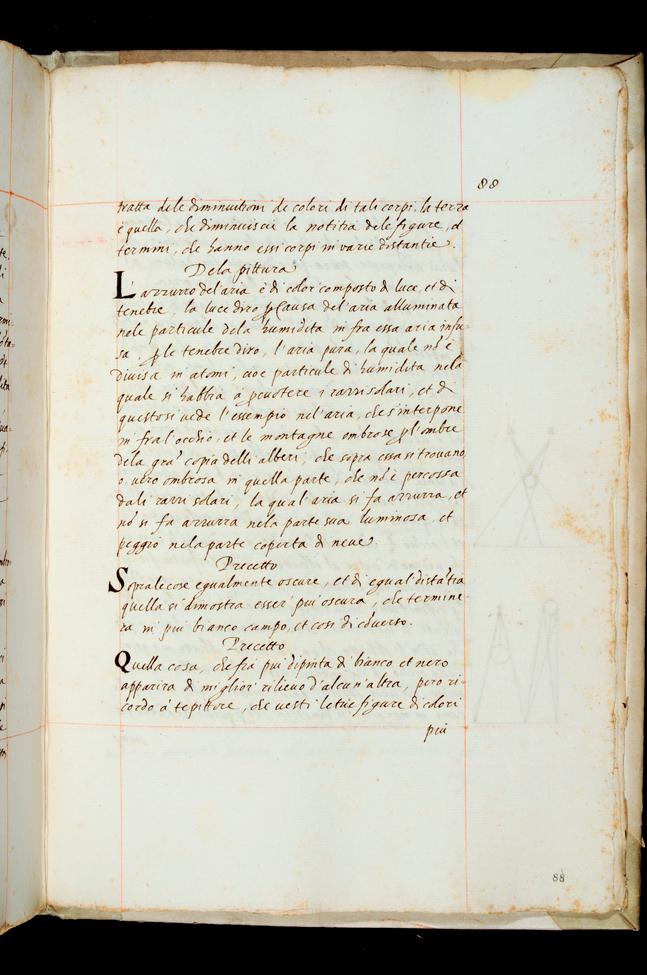 88
tratta dele diminuitioni de colori di tali corpi, la terza
è quella, che diminuisce la notitia dele figure, e
termini, che hanno essi corpi in varie distantie.
Dela pittura
L'azzurro del'aria è di color composto di luce, et di
tenebre, la luce diro p causa del'aria alluminata
nele particule dela humidita in fra essa aria infu=
sa, p le tenebre diro, l'aria pura, la quale nō è
divisa in atomi, cioe particule di humidita nela
quale si habbia à pcuotere i razzi solari, et di
questo si vede l'essempio nel'aria, che s'interpone
in fra l'occhio, et le montagne ombrose p l'ombre
dela grā copia delli alberi, che sopra essa si trovano
o vero ombrosa in quella parte, che nō è percossa
dali razzi solari, la qual'aria si fa azzurra, et
nō si fa azzurra nela parte sua luminosa, et
peggio nela parte coperta di neve.
Precetto
Sopra le cose egualmente oscure, et di egual distātia
quella si dimostra esser piu oscura, che termine=
ra in piu bianco campo, et cosi di cōverso.
Precetto
Quella cosa, che fia piu dipinta di bianco et nero
apparira di miglior rilievo d'alcun'altra, pero ri=
cordo à te pittore, che vesti le tue figure di colori
piu
88